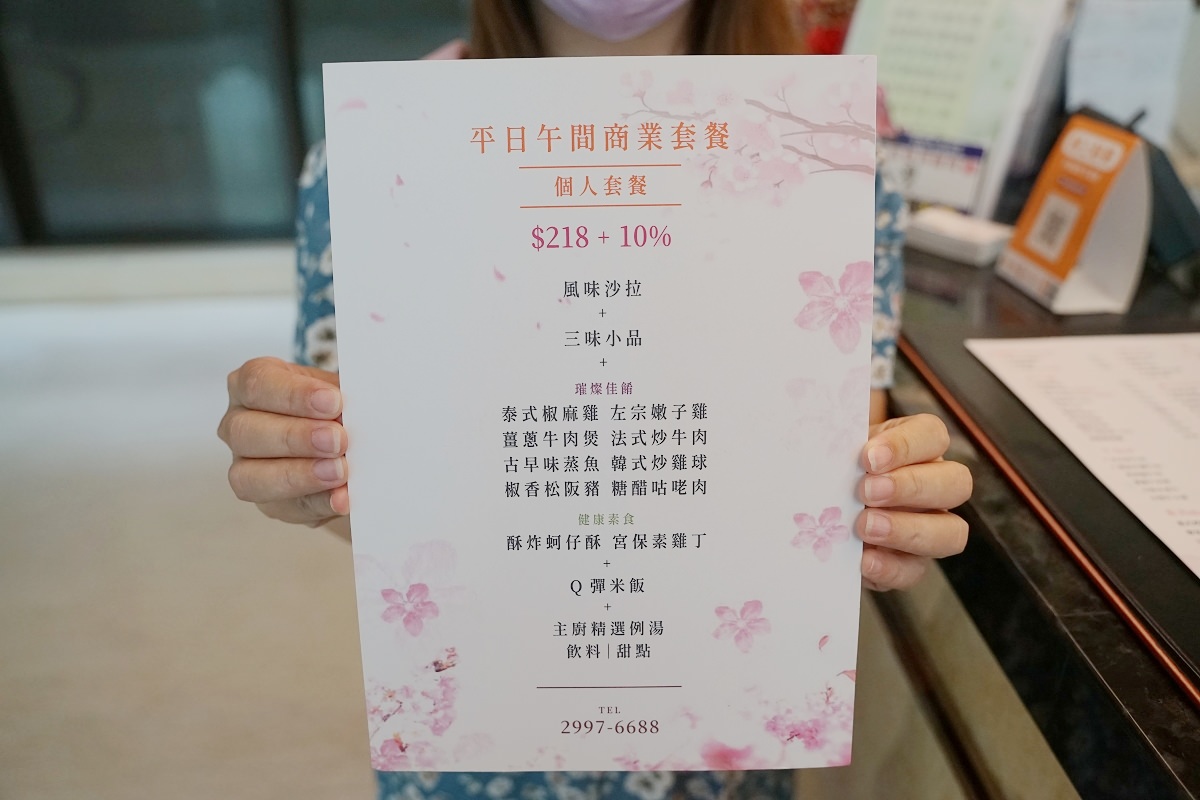 平日午間商業套餐
個人套餐
$218 + 10%
風味沙拉
+
三味小品
+
璀燦佳餚
泰式椒麻雞 左宗嫩子雞
薑蔥牛肉煲 法式炒牛肉
古早味蒸魚 韓式炒雞球
椒香松阪豬 糖醋咕咾肉
健康素食
酥炸蚵仔酥 宮保素雞丁
+
Q 彈米飯
+
主廚精選例湯
飲料|甜點
TEL
2997-6688